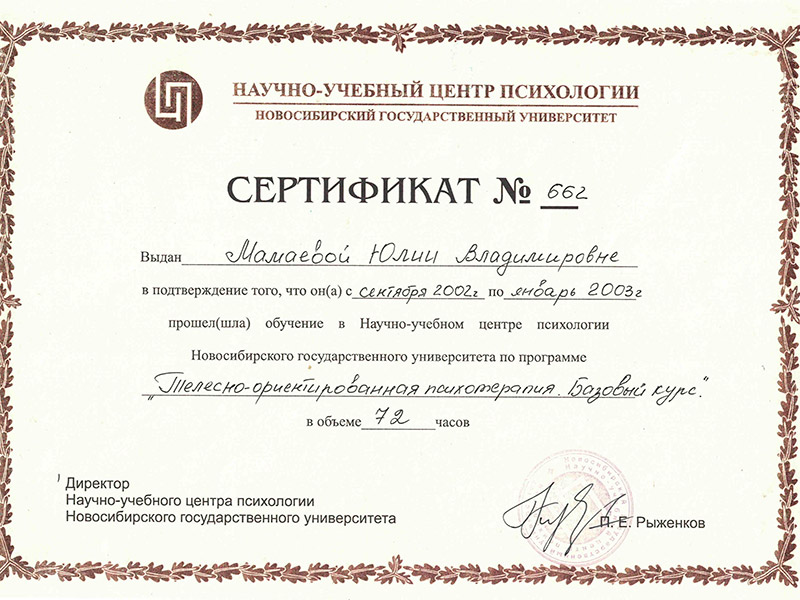 НАУЧНО-УЧЕБНЫЙ ЦЕНТР ПСИХОЛОГИИ
НОВОСИБИРСКИЙ ГОСУДАРСТВЕННЫЙ УНИВЕРСИТЕТ
СЕРТИФИКАТ № 662
Выдан Мамаевой Юлии Владимировне
в подтверждение того, что он(а) с сентября 2002г по январь 2003г
прошел(шла) обучение в Научно-учебном центре психологии
Новосибирского государственного университета по программе
„Телесно-ориентированная психотерапия. Базовый курс".
в объеме 72 часов
Директор
Научно-учебного центра психологии
Новосибирского государственного университета
П. Е. Рыженков